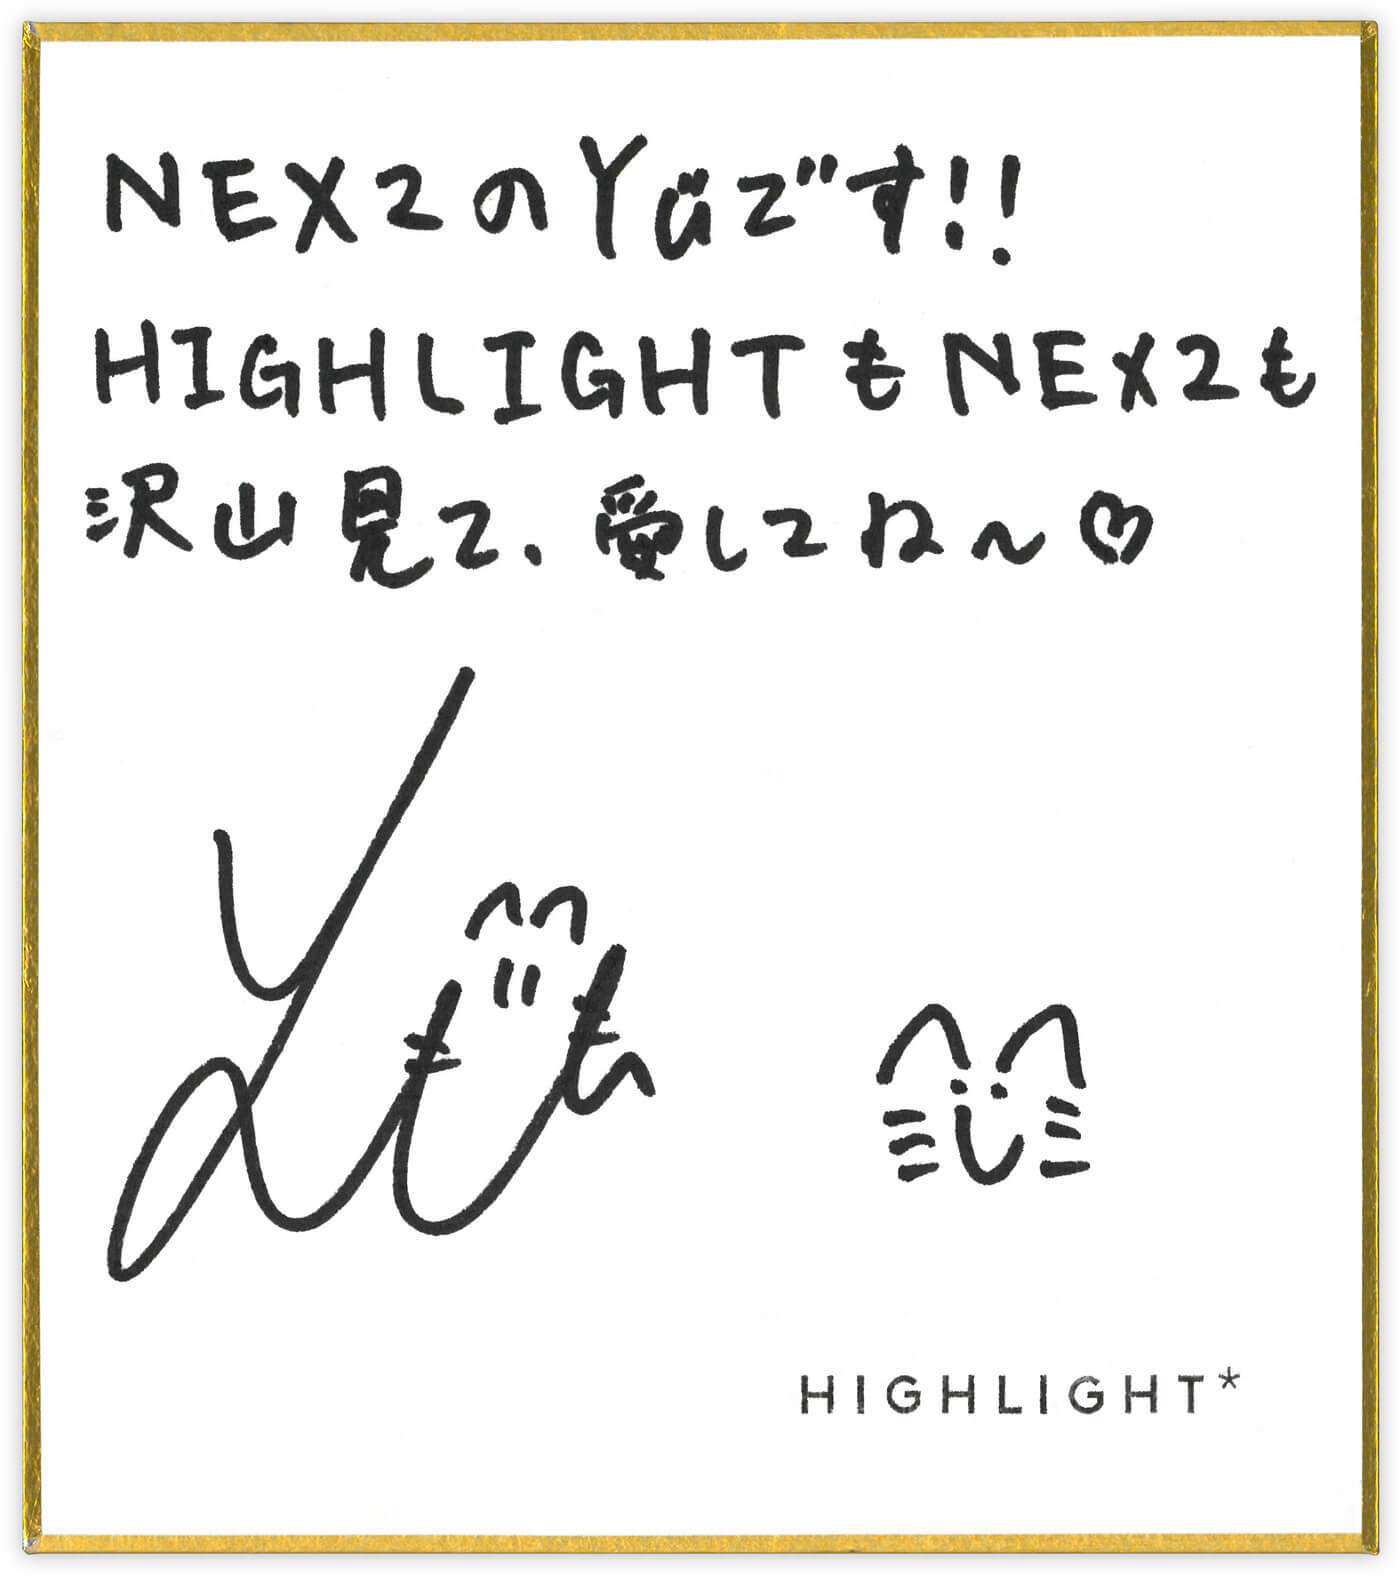 NEX2のYuです!!
HIGHLIGHTもNEX2も
沢山見て、愛してね〜♡
HIGHLIGHT*